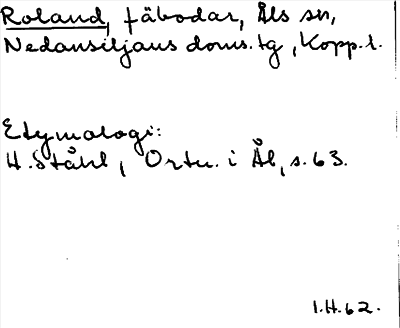 Roland, fäbodar, Åls sn,
Nedansiljans doms.tg, Kopp.l.
Etymologi:
H. Ståhl, Ortn. i Ål, s. 63.
I.H.62.